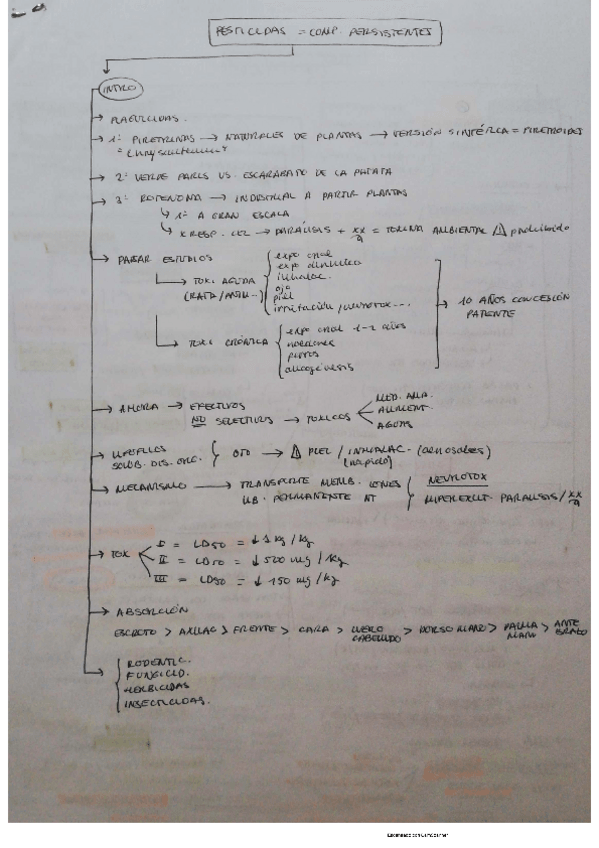 PESTICIDAS = COMP. PERSISTENTES
INTRO
→ PLAGUICIDAS.
→ 1º PIRETRINAS → NATURALES DE PLANTAS → VERSIÓN SINTÉTICA = PIRETROIDES
→ 2º VERDE PARIS VS. ESCARABAJO DE LA PATATA
→ 3º ROTENONA → INDUSTRIAL A PARTIR PLANTAS
↳ 1º A GRAN ESCALA
↳ X RESP. CEL → PARÁLISIS + = TOXINA AMBIENTAL ⚠ prohibido
→ PASAR ESTUDIOS
→ TOX. AGUDA
(RATA/
expo oral
expo dérmica
inhalac.
ojo
piel
irritación /
→ TOX. CRÓNICA
expo oral 1-2 años
perros
→ 10 AÑOS CONCESIÓN
PATENTE
→ AHORA → EFECTIVOS
NO SELECTIVOS → TÓXICOS
MED. AMB.
ALIMENT.
AGUAS
→ LIPOFILOS
SOLUB. DIS. ORG.
→ ⚠ PIEL / INHALAC. (aerosoles)
(rápido)
→ MECANISMO → TRANSPORTE MEMB. IONES
LIB. PERMANENTE NT
NEUROTOX
HIPEREXCIT. PARALISIS/
→ TOX
I = LD50 = ↓ 1 kg / kg
II = LD50 = ↓ 500 mg / kg
III = LD50 = ↓ 150 mg / kg
→ ABSORCIÓN
ESCROTO > AXILAS > FRENTE > CARA > CUERO CABELLUDO > DORSO MANO > PALMA MANO > ANTE BRAZO
→ RODENTIC.
FUNGICID.
HERBICIDAS
INSECTICIDAS.
Escaneado con CamScanner